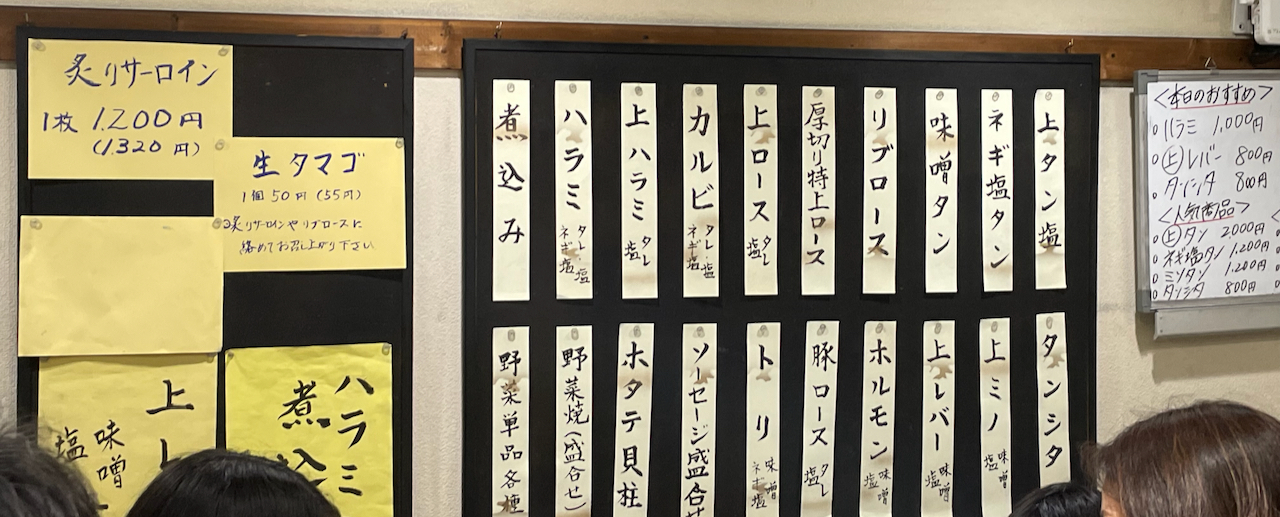 炙りサーロイン
1枚 1.200円
(1.320 円)
生タマゴ
1個 50円 (55円)
炙リサーロインやリブロースに
絡めてお召し上がり下さい
上
味噌
塩
ハラミ
煮込
上タン塩
ネギ塩タン
味噌タン
リブロース
厚切り特上ロース
上ロース タレ 塩
カルビ タレ・塩 ネギ塩
上ハラミ タレ 塩
ハラミ タレ・塩 ネギ塩
煮込み
タンシタ
上ミノ 味噌 塩
上レバー 味噌 塩
ホルモン 味噌 塩
豚ロース タレ 塩
トリ 味噌 ネギ塩
ソーセージ盛合せ
ホタテ貝柱
野菜焼(盛合せ)
野菜単品各種
<本日のおすすめ>
ハラミ 1,000円
上レバー 800円
タンシタ 800円
<人気商品>
上タン 2,000円
ネギ塩タン 1,200円
ミソタン 1,200円
タンシタ 800円